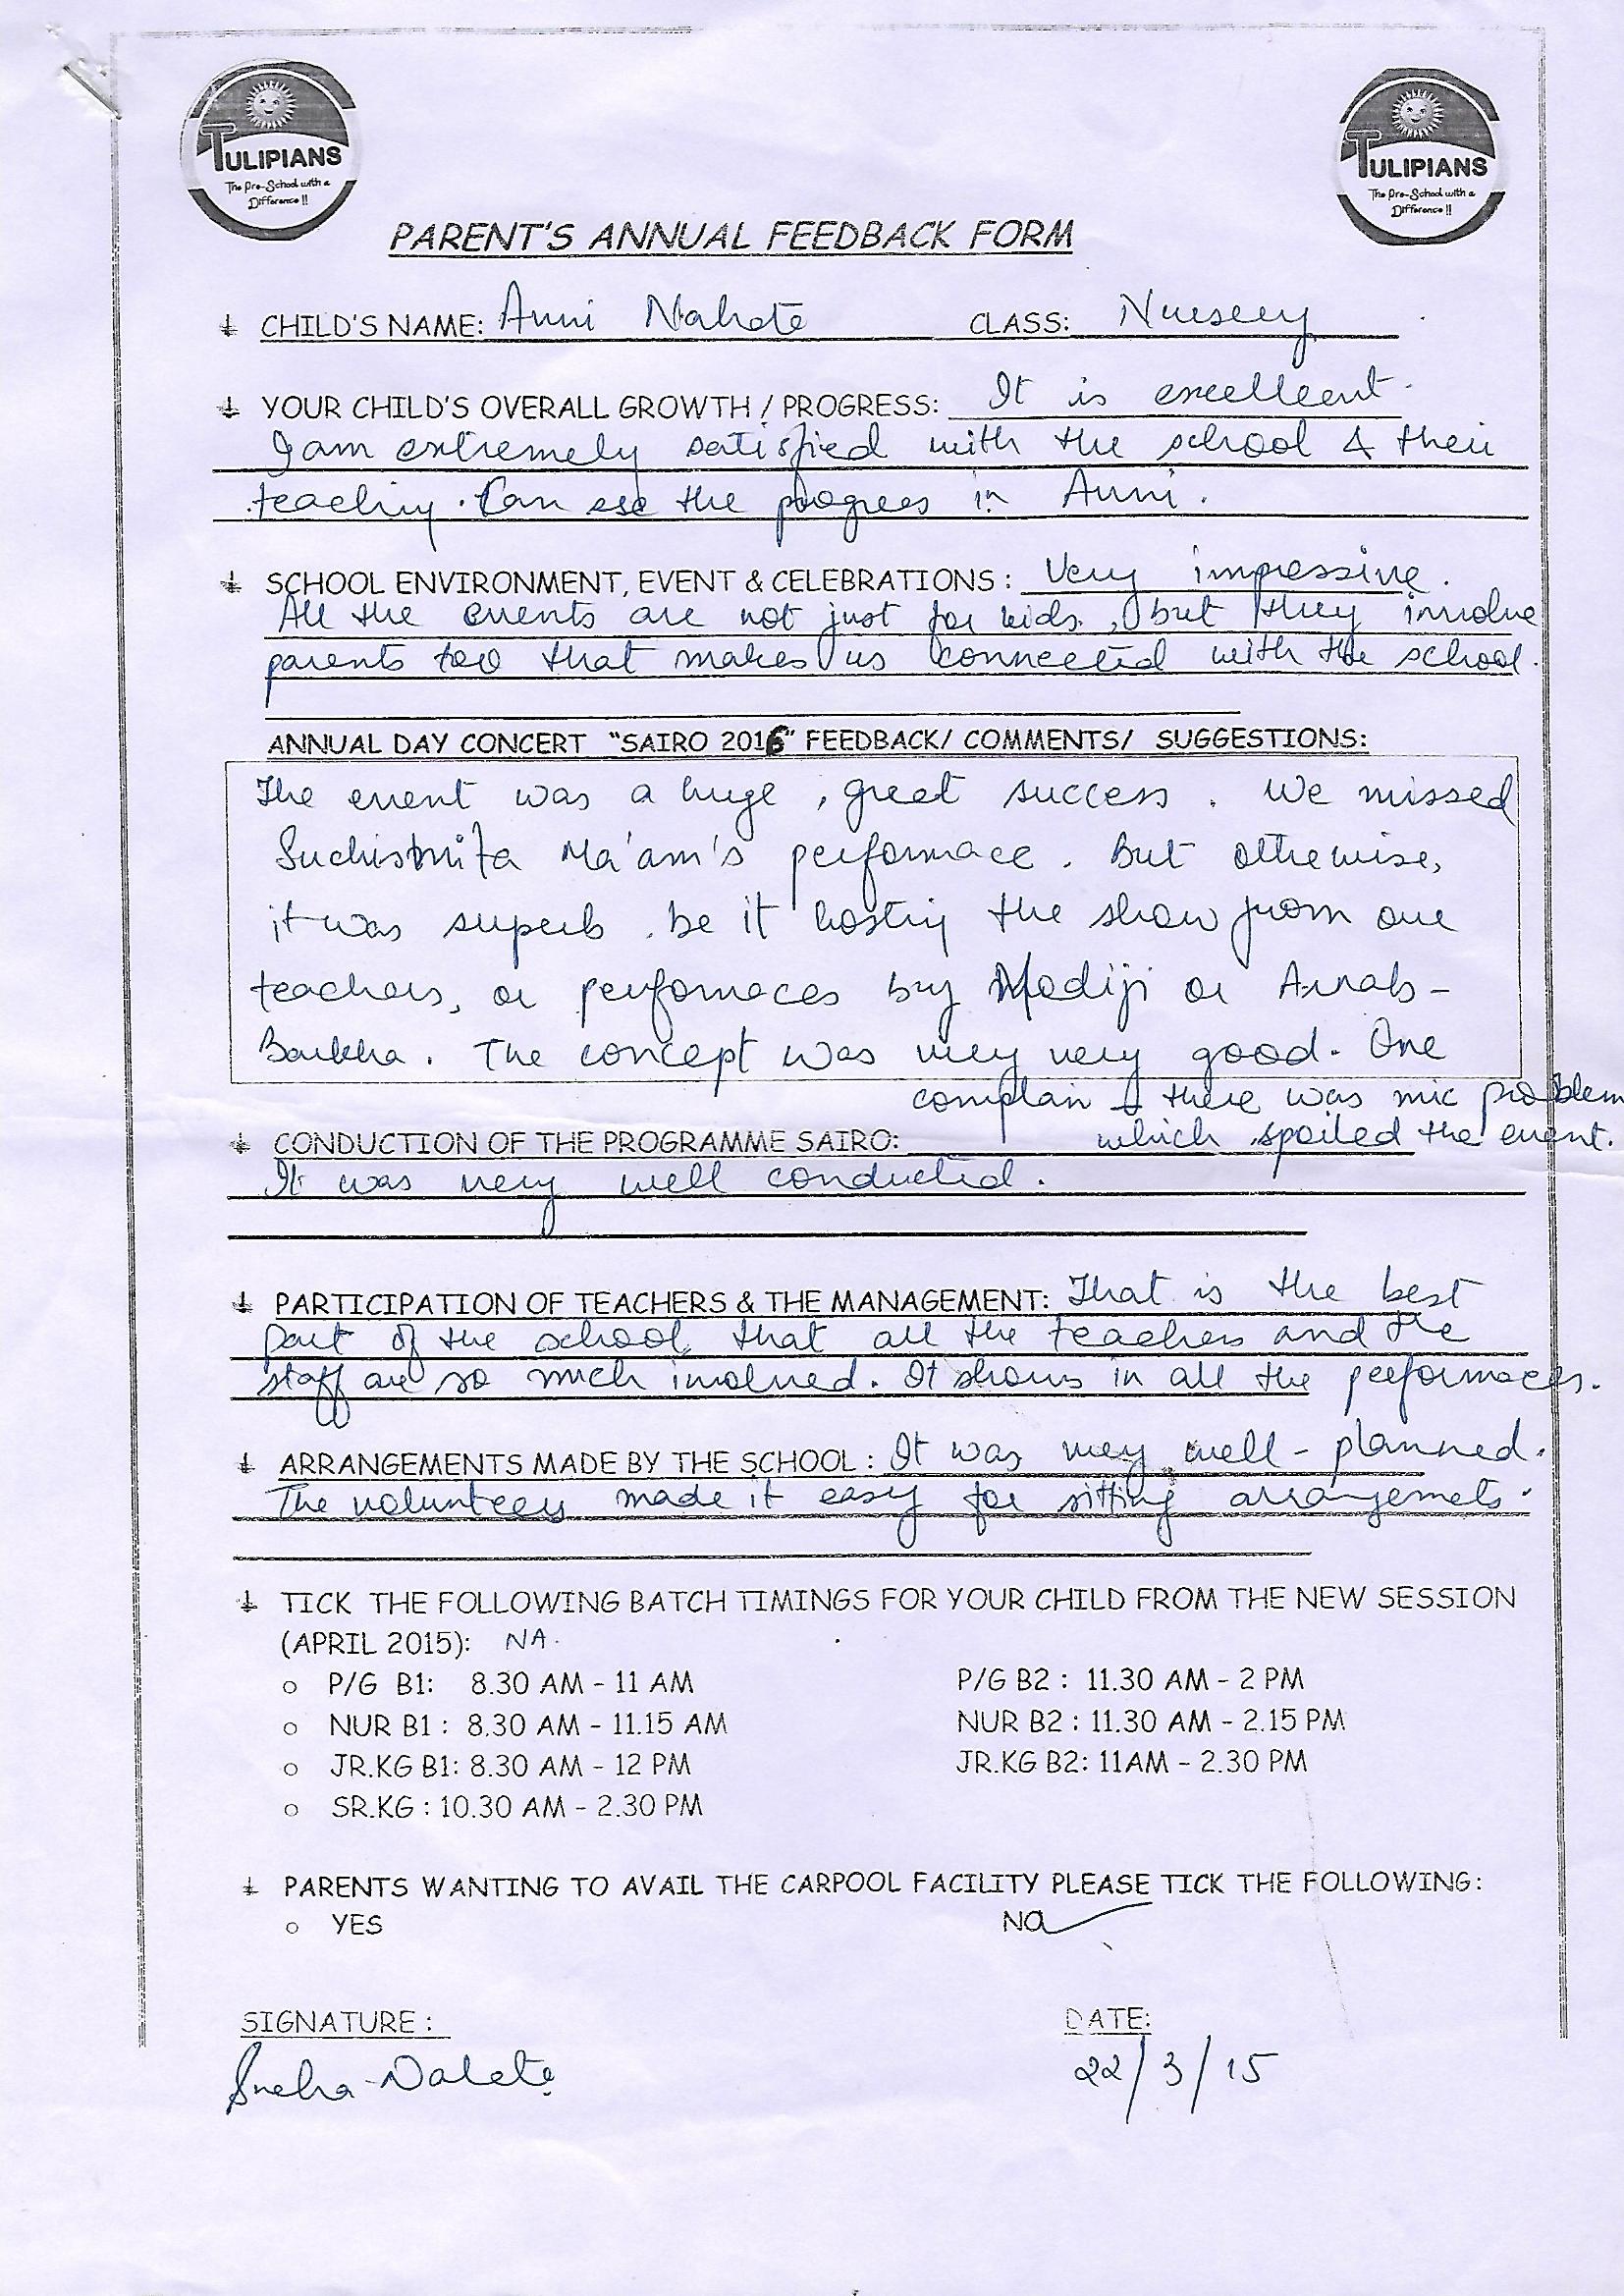 TULIPIANS
The Pre-School with a
Difference !!
TULIPIANS
The Pre-School with a
Difference !!
PARENT'S ANNUAL FEEDBACK FORM
CHILD'S NAME: Anni Nahate CLASS: Nursery
YOUR CHILD'S OVERALL GROWTH / PROGRESS: It is excellent.
I am extremely satisfied with the school & their
teaching. Can see the progress in Anni.
SCHOOL ENVIRONMENT, EVENT & CELEBRATIONS: Very impressive.
All the events are not just for kids, but they involve
parents too that makes us connected with the school.
ANNUAL DAY CONCERT "SAIRO 2015" FEEDBACK/ COMMENTS/ SUGGESTIONS:
The event was a huge, great success. We missed
Suchismita Ma'am's performace. But otherwise,
it was superb. be it hosting the show from our
teachers, or perfomaces by Modiji or Arnab-
Barkha. The concept was very very good. One
complain & there was mic problem
CONDUCTION OF THE PROGRAMME SAIRO: which spoiled the event.
It was very well conducted.
PARTICIPATION OF TEACHERS & THE MANAGEMENT: That is the best
part of the school, that all the teachers and the
staff are so much involved. It shows in all the performaces.
ARRANGEMENTS MADE BY THE SCHOOL: It was very well-planned.
The volunteers made it easy for sitting arrangemets.
TICK THE FOLLOWING BATCH TIMINGS FOR YOUR CHILD FROM THE NEW SESSION
(APRIL 2015): NA.
P/G B1: 8.30 AM - 11 AM P/G B2 : 11.30 AM - 2 PM
NUR B1 : 8.30 AM - 11.15 AM NUR B2 : 11.30 AM - 2.15 PM
JR.KG B1: 8.30 AM - 12 PM JR.KG B2: 11AM - 2.30 PM
SR.KG : 10.30 AM - 2.30 PM
PARENTS WANTING TO AVAIL THE CARPOOL FACILITY PLEASE TICK THE FOLLOWING:
YES NO
SIGNATURE : DATE:
Sneha Nahate 22/3/15